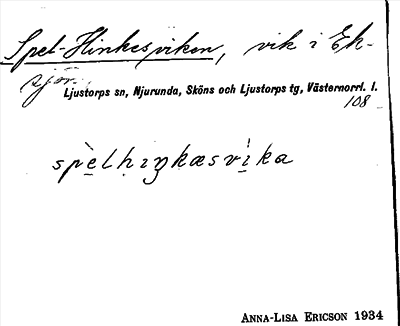 Spel-Hinkesviken, vik i Ek-
sjön.
Ljustorps sn, Njurunda, Sköns och Ljustorps tg, Västernorrl. l.
108
spèlhiŋkæsvìka
ANNA-LISA ERICSON 1934